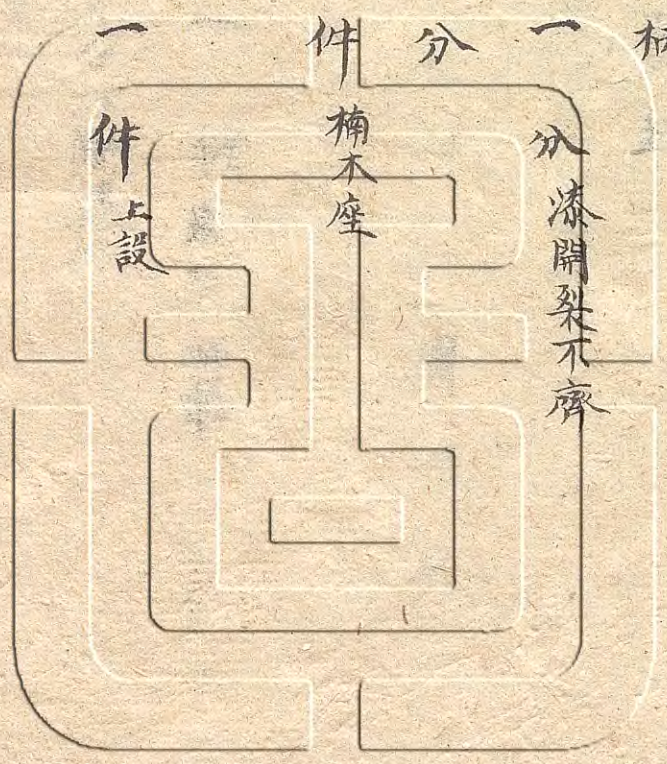 一分漆開裂不齊
分
件楠木座
一件上設